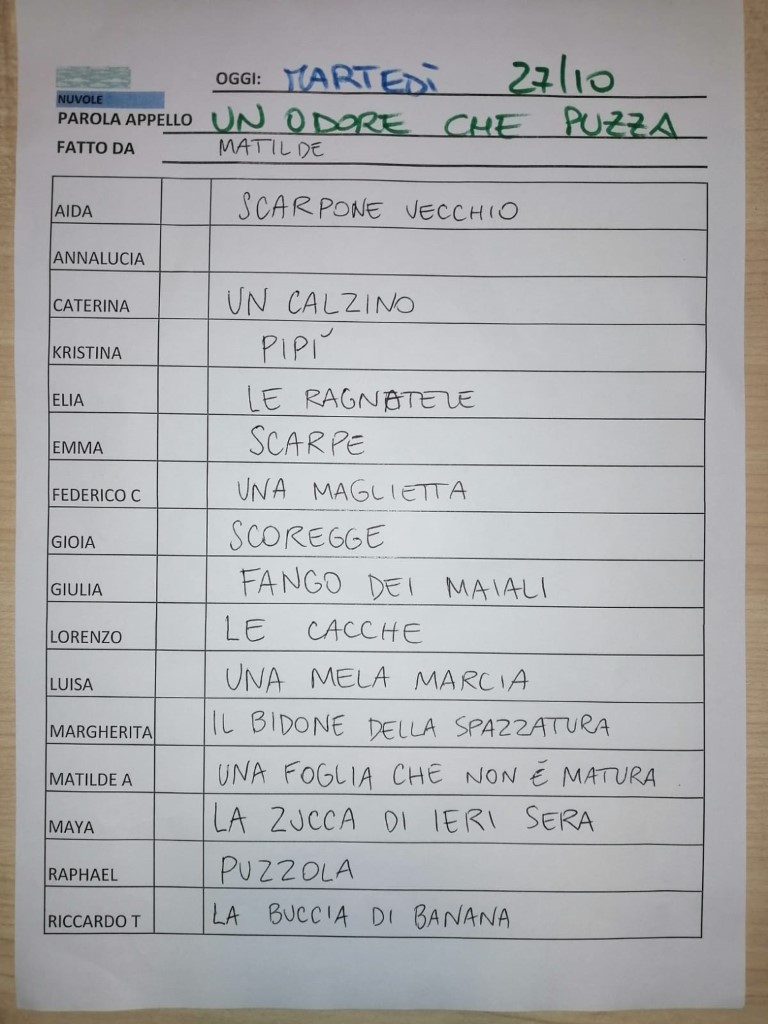 OGGI: MARTEDÌ 27/10
NUVOLE
PAROLA APPELLO UN ODORE CHE PUZZA
FATTO DA MATILDE
AIDA SCARPONE VECCHIO
ANNALUCIA
CATERINA UN CALZINO
KRISTINA PIPÌ
ELIA LE RAGNATELE
EMMA SCARPE
FEDERICO C UNA MAGLIETTA
GIOIA SCOREGGE
GIULIA FANGO DEI MAIALI
LORENZO LE CACCHE
LUISA UNA MELA MARCIA
MARGHERITA IL BIDONE DELLA SPAZZATURA
MATILDE A UNA FOGLIA CHE NON É MATURA
MAYA LA ZUCCA DI IERI SERA
RAPHAEL PUZZOLA
RICCARDO T LA BUCCIA DI BANANA